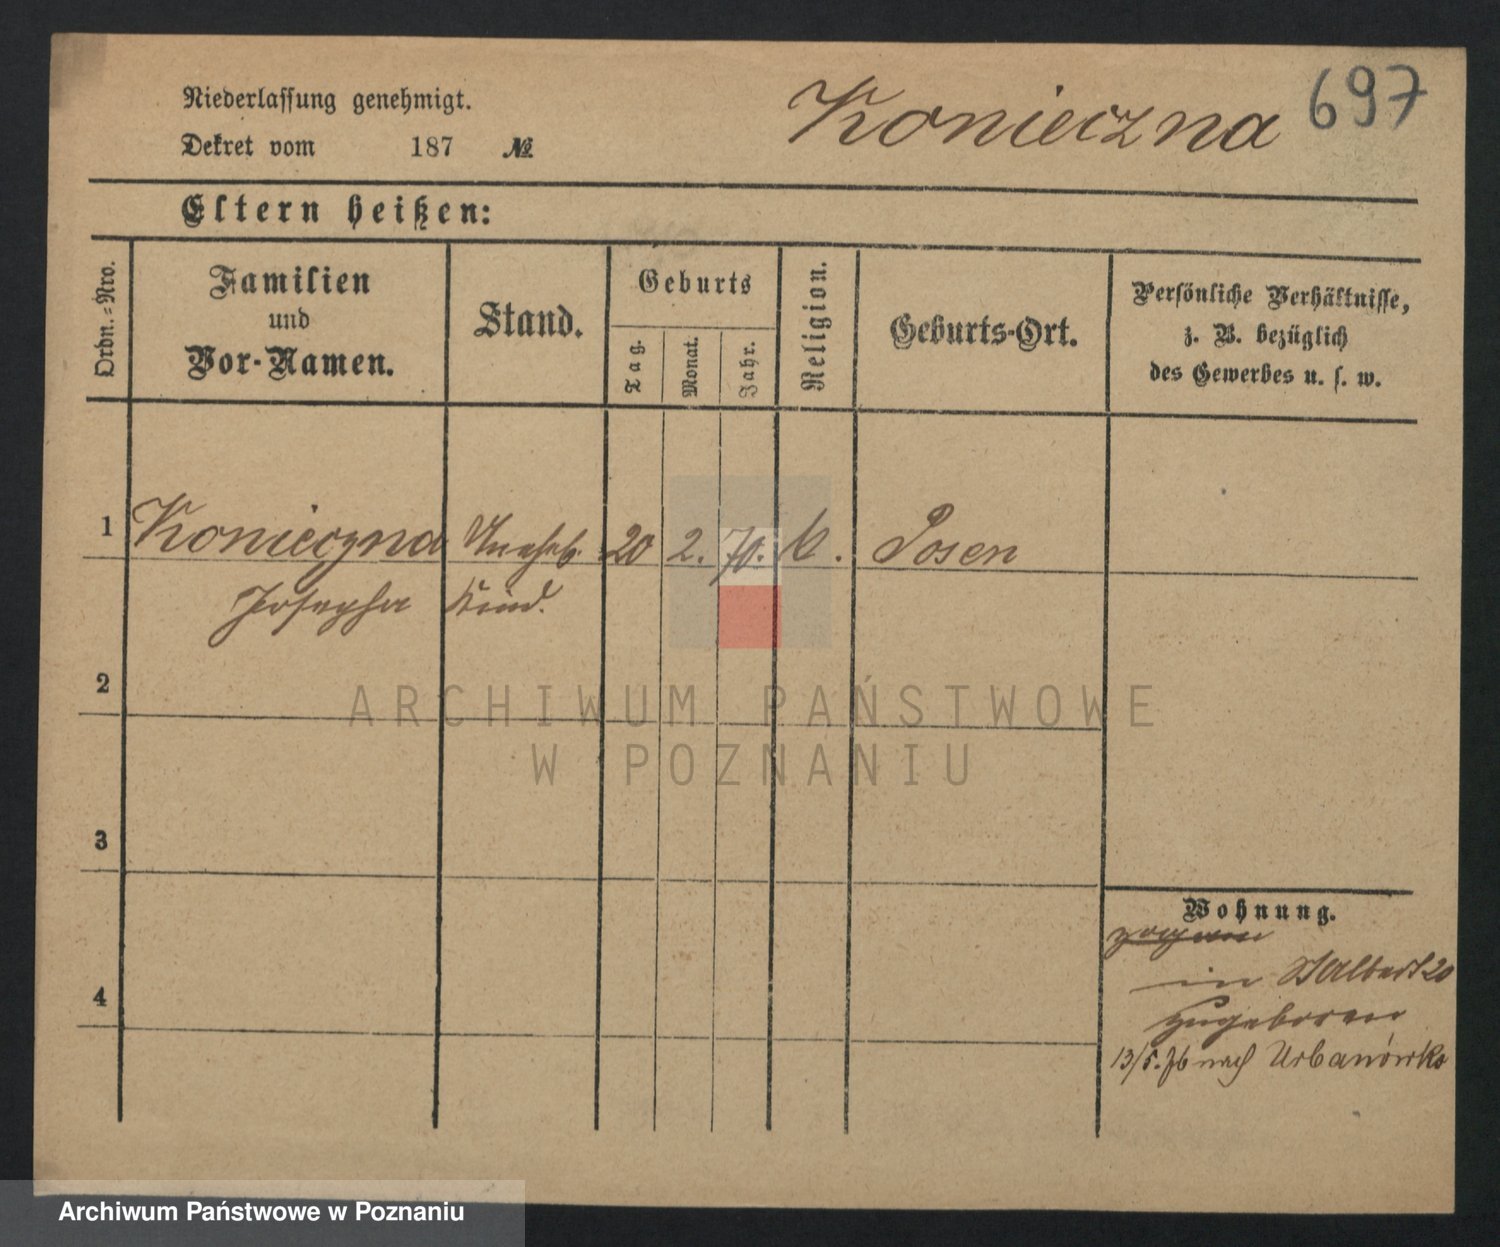 Niederlassung genehmigt.
Dekret vom 187 №
Konieczna
697
Eltern heißen:
Ordn.=Nro.
Familien
und
Vor-Namen.
Stand.
Geburts
Tag.
Monat.
Jahr.
Religion.
Geburts-Ort.
Persönliche Verhältnisse,
z. B. bezüglich
des Gewerbes u. s. w.
1 Konieczna Unehel. 20 2. 70. k. Posen
Josepha Kind.
2
3
4
Wohnung.
in St Albert 20
zugeboren
13/5. 76 nach Urbanówko
ARCHIWUM PAŃSTWOWE
W POZNANIU
Archiwum Państwowe w Poznaniu